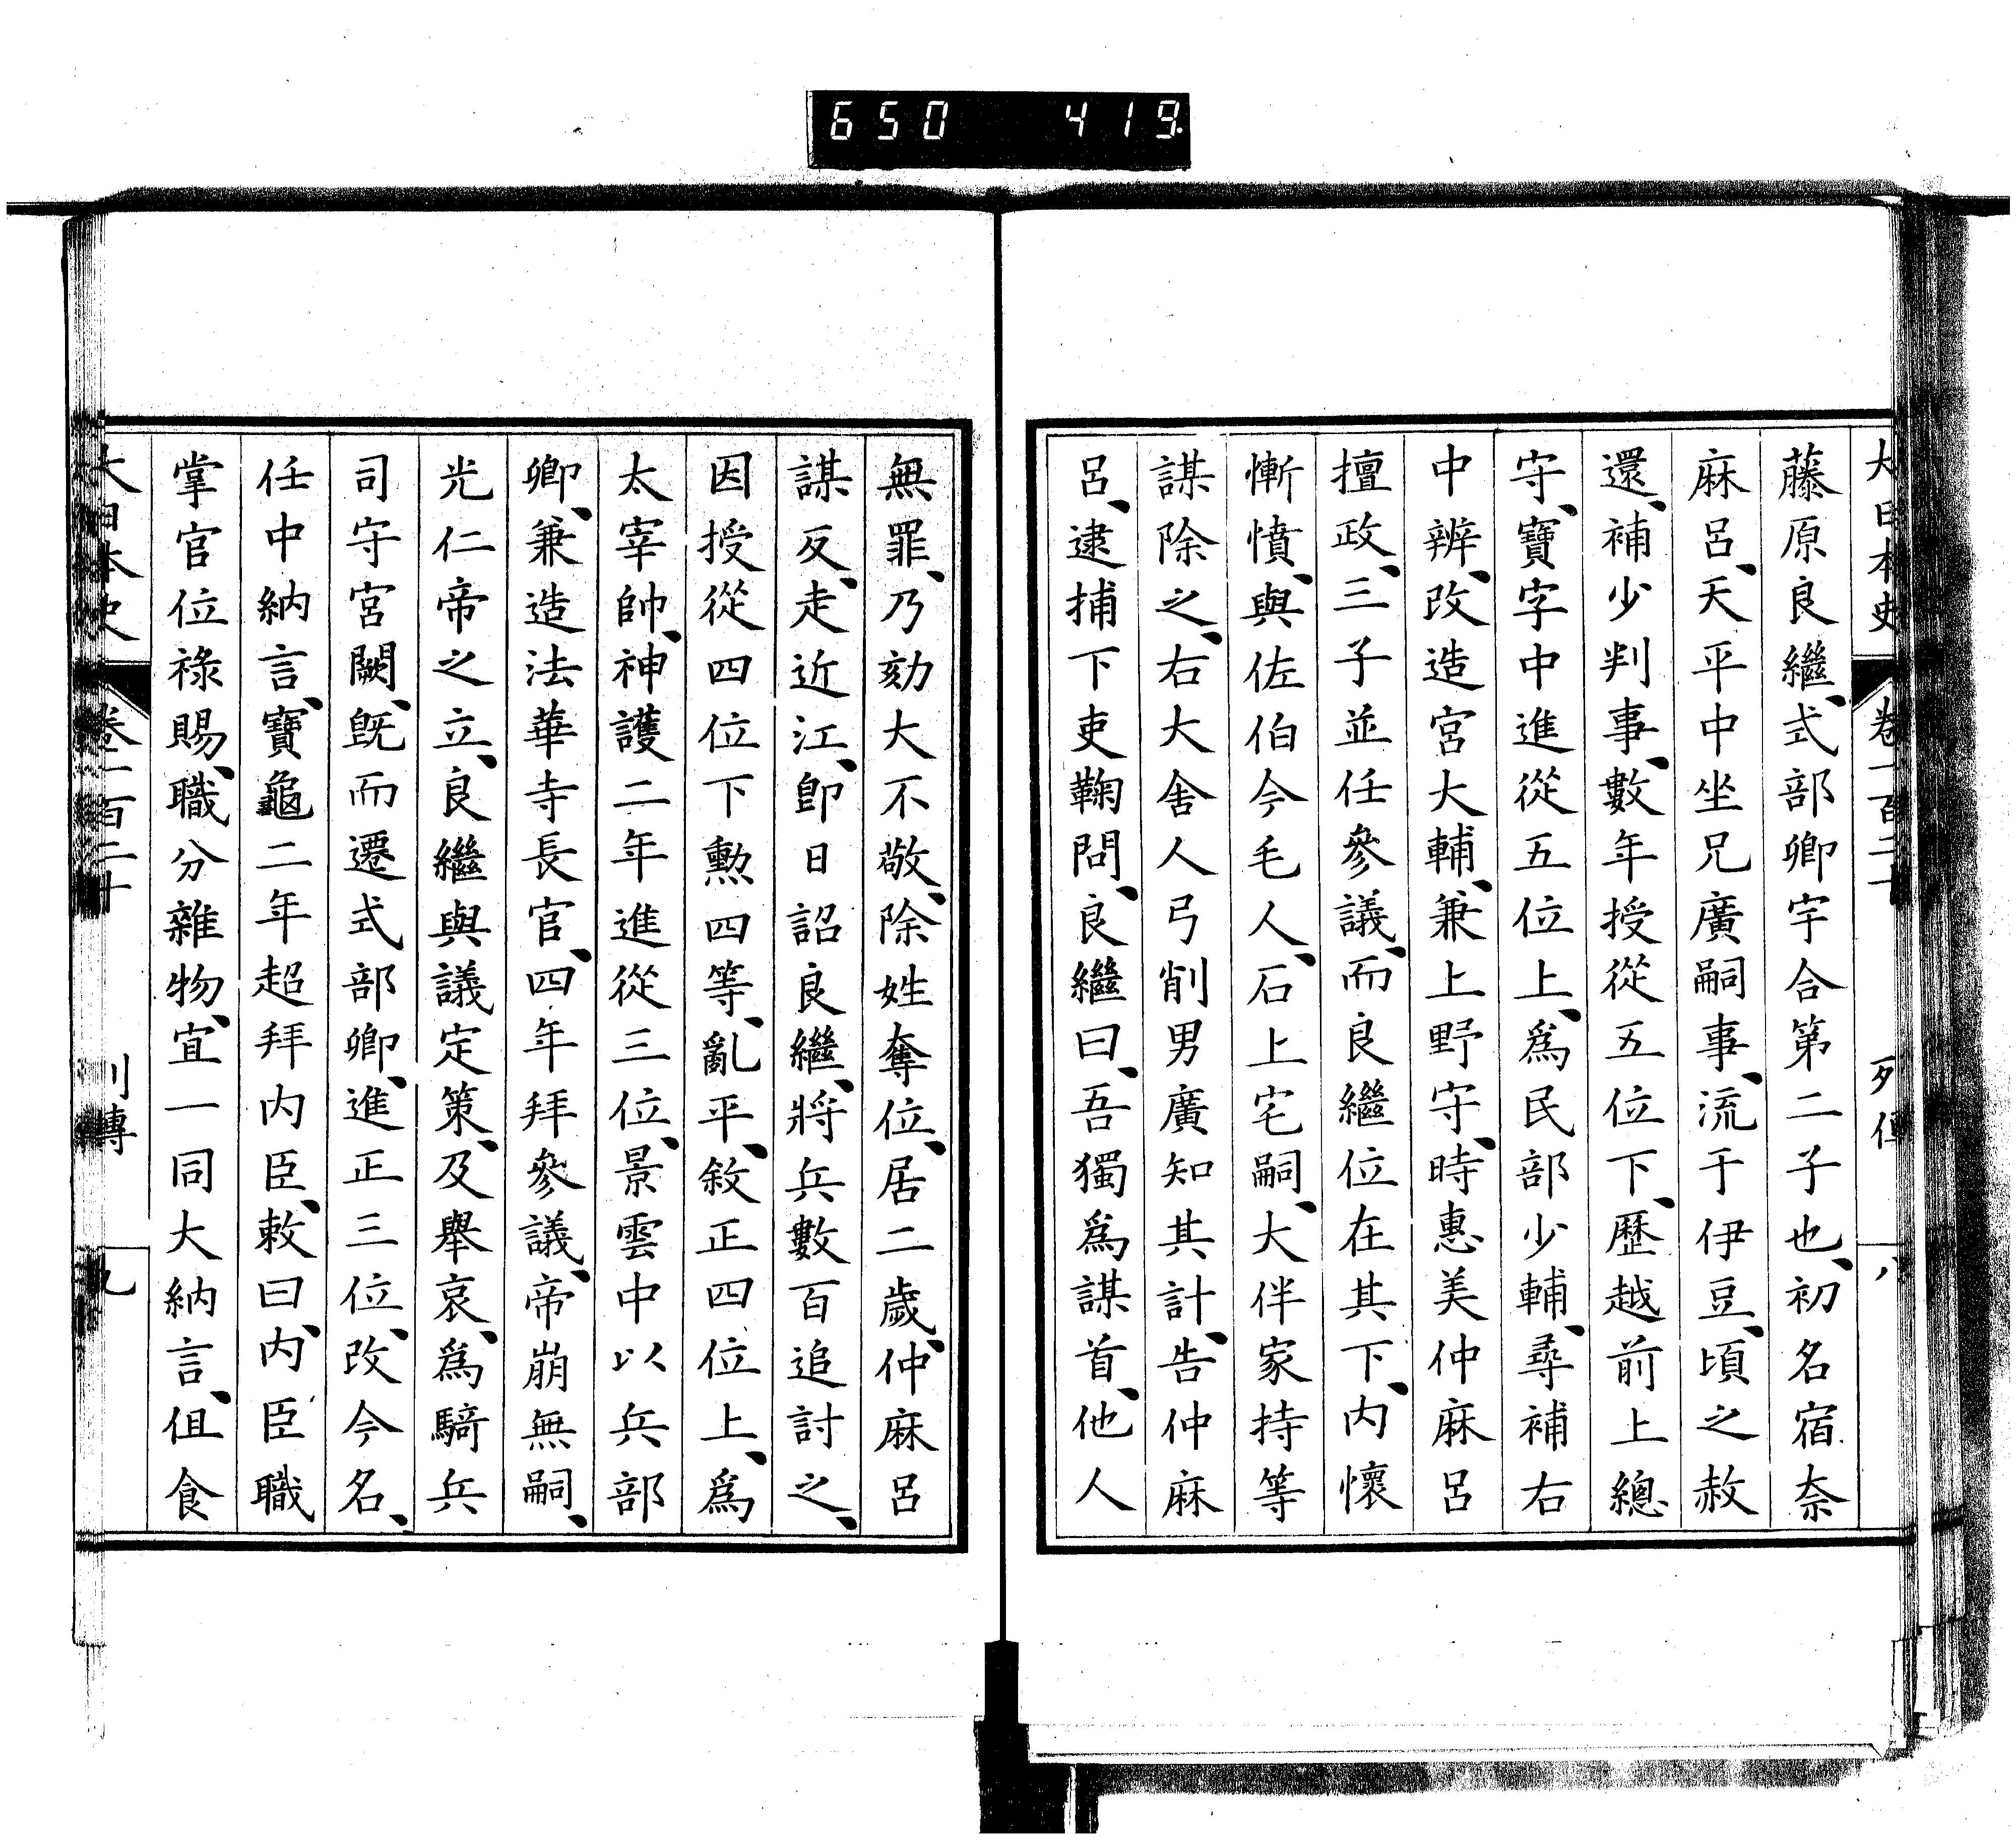 650 419.
大日本史 卷一百二十 列傳 八
藤原良繼、式部卿宇合第二子也、初名宿奈
麻呂、天平中坐兄廣嗣事、流于伊豆、頃之赦
還、補少判事、數年授從五位下、歷越前上總
守、寶字中進從五位上、爲民部少輔、尋補右
中辨、改造宮大輔、兼上野守、時惠美仲麻呂
擅政、三子並任參議、而良繼位在其下、内懷
慚憤、與佐伯今毛人、石上宅嗣、大伴家持等
謀除之、右大舍人弓削男廣知其計、告仲麻
呂、逮捕下吏鞠問、良繼曰、吾獨爲謀首、他人
無罪、乃劾大不敬、除姓奪位、居二歲、仲麻呂
謀反、走近江、卽日詔良繼、將兵數百追討之、
因授從四位下勳四等、亂平、敘正四位上、爲
太宰帥、神護二年進從三位、景雲中以兵部
卿、兼造法華寺長官、四年拜參議、帝崩無嗣、
光仁帝之立、良繼與議定策、及舉哀、爲騎兵
司守宮闕、旣而遷式部卿、進正三位、改今名、
任中納言、寶龜二年超拜内臣、敕曰、内臣職
掌官位祿賜、職分雜物、宜一同大納言、但食
大日本史 卷一百二十 列傳 九